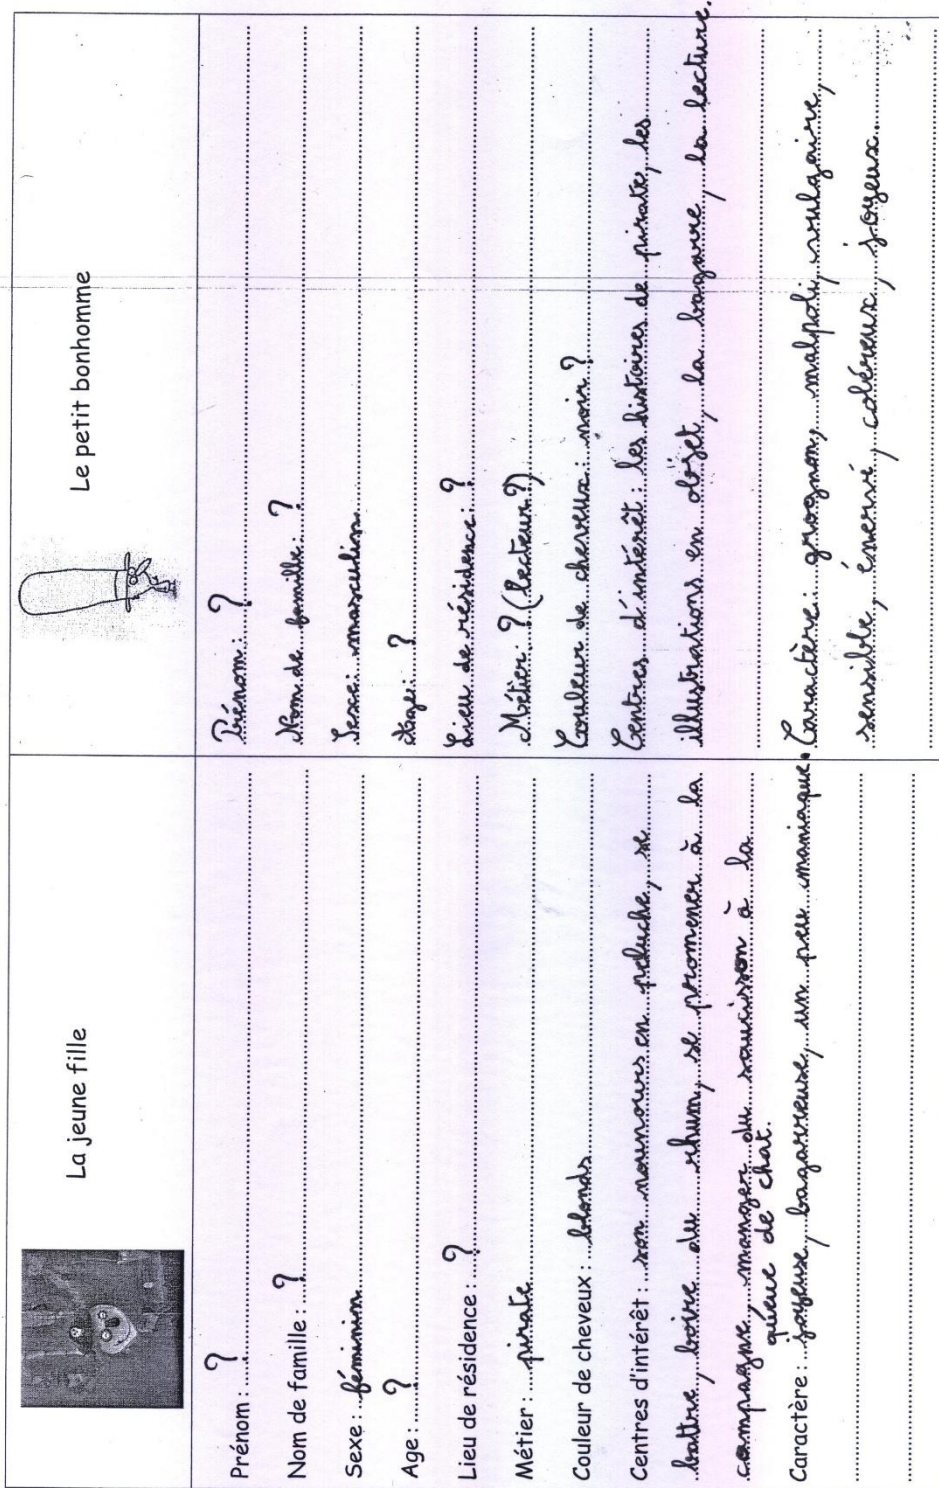 La jeune fille
Prénom : ?
Nom de famille : ?
Sexe : féminin
Age : ?
Lieu de résidence : ?
Métier : pirate
Couleur de cheveux : blonds
Centres d'intérêt : son nounours en peluche, se
battre, boire du rhum, se promener à la
campagne, manger du saucisson à la
queue de chat.
Caractère : joyeuse, bagarreuse, un peu maniaque.
Le petit bonhomme
Prénom : ?
Nom de famille : ?
Sexe : masculin
Age : ?
Lieu de résidence : ?
Métier : ? (lecteur ?)
Couleur de cheveux : noir ?
Centres d'intérêt : les histoires de pirate, les
illustrations en objet, la bagarre, la lecture.
Caractère : grognon, malpoli, vulgaire,
sensible, énervé, coléreux, joyeux.